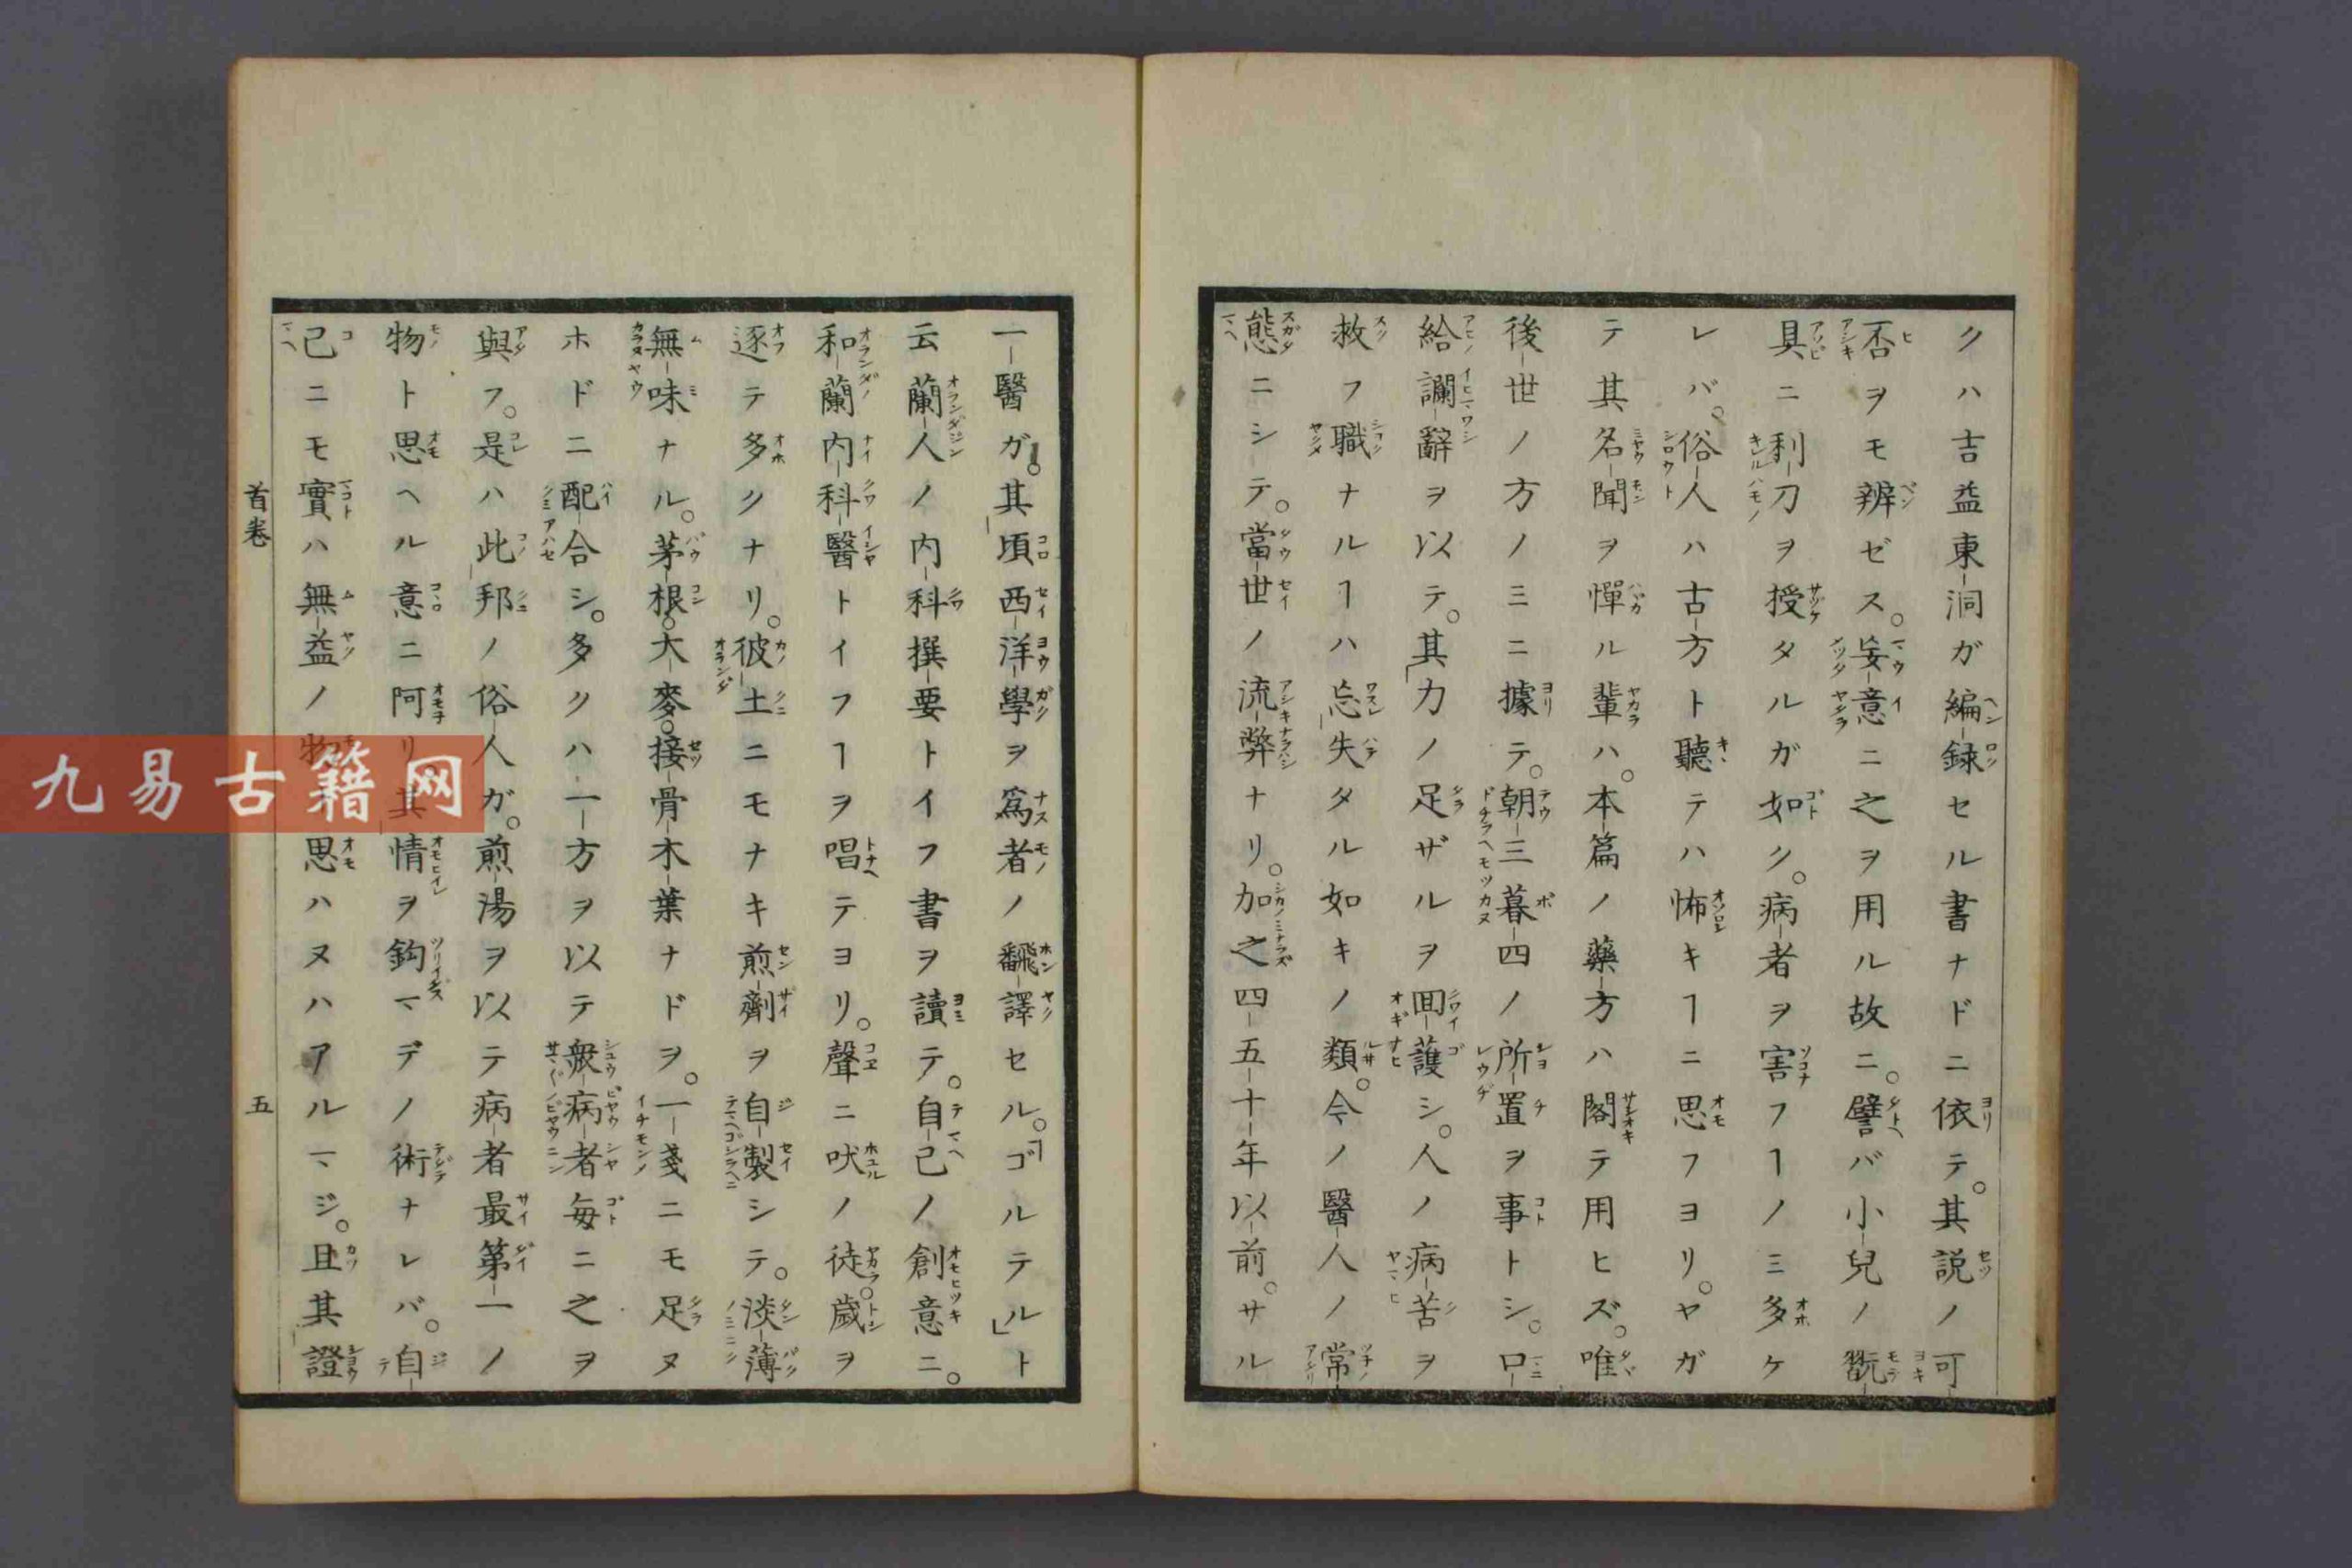 クハ吉益東洞ガ編録セル書ナドニ依テ。其説ノ可
否ヲモ辨ゼス。妄意ニ之ヲ用ル故ニ。譬バ小兒ノ翫
具ニ利刀ヲ授タルガ如ク。病者ヲ害フヿノミ多ケ
レバ。俗人ハ古方ト聽テハ怖キヿニ思フヨリ。ヤガ
テ其名聞ヲ憚ル輩ハ。本篇ノ藥方ハ閣テ用ヒズ。唯
後世ノ方ノミニ據テ。朝三暮四ノ所置ヲ事トシ。口
給讕辭ヲ以テ。其力ノ足ザルヲ回護シ。人ノ病苦ヲ
救フ職ナルヿハ忘失タル如キノ類。今ノ醫人ノ常
態ニシテ。當世ノ流弊ナリ。加之四五十年以前。サル
一醫ガ。其頃西洋學ヲ爲者ノ飜譯セル。「ゴルテル」ト
云蘭人ノ内科撰要トイフ書ヲ讀テ。自己ノ創意ニ。
和蘭内科醫トイフヿヲ唱テヨリ。聲ニ吠ノ徒。歲ヲ
逐テ多クナリ。彼土ニモナキ煎劑ヲ自製シテ。淡薄
無味ナル。茅根。大麥。接骨木葉ナドヲ。一戔ニモ足ヌ
ホドニ配合シ。多クハ一方ヲ以テ衆病者毎ニ之ヲ
與フ。是ハ此邦ノ俗人ガ。煎湯ヲ以テ病者最第一ノ
物ト思ヘル意ニ阿リ。其情ヲ鈎マデノ術ナレバ。自
己ニモ實ハ無益ノ物ト思ハヌハアルマジ。且其證
首卷
五
九易古籍网